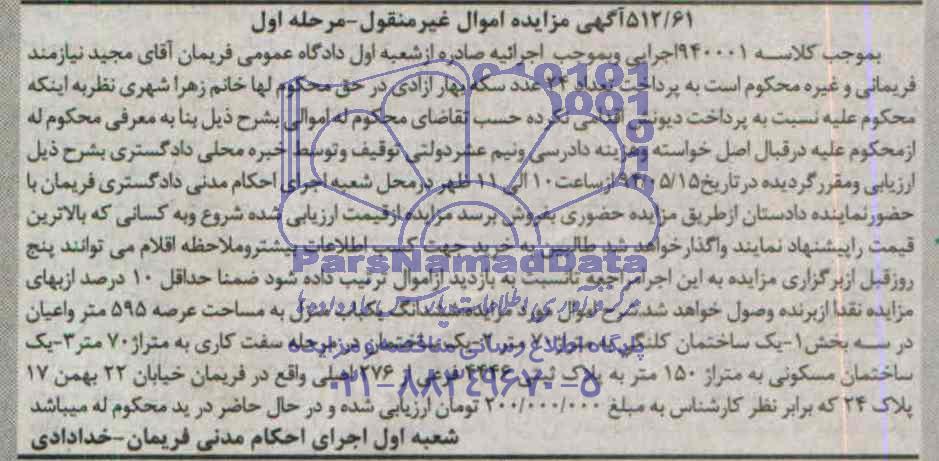 ۵۱۲/۶۱آگهی مزایده اموال غیرمنقول-مرحله اول
بموجب کلاسه ۹۴۰۰۰۱اجرایی وبموجب اجرائیه صادره ازشعبه اول دادگاه عمومی فریمان آقای مجید نیازمند
فریمانی و غیره محکوم است به پرداخت تعداد ۲۴ عدد سکه بهار ازادی در حق محکوم لها خانم زهرا شهری نظربه اینکه
محکوم علیه نسبت به پرداخت دیونش اقدامی نکرده حسب تقاضای محکوم له اموالی بشرح ذیل بنا به معرفی محکوم له
ازمحکوم علیه درقبال اصل خواسته وهزینه دادرسی ونیم عشردولتی توقیف وتوسط خبره محلی دادگستری بشرح ذیل
ارزیابی ومقررگردیده درتاریخ ازساعت ۱۰ الی ۱۱ ظهر درمحل شعبه اجرای احکام مدنی دادگستری فریمان با
حضورنماینده دادستان ازطریق مزایده حضوری بفروش برسد مزایده ازقیمت ارزیابی شده شروع وبه کسانی که بالاترین
قیمت راپیشنهاد نمایند واگذارخواهد شد طالبین به خرید جهت کسب اطلاعات بیشتروملاحظه اقلام می توانند پنج
روزقبل ازبرگزاری مزایده به این اجرا مراجعه تانسبت به بازدید ازاموال ترتیب داده شود ضمنا حداقل ۱۰ درصد ازبهای
مزایده نقدا ازبرنده وصول خواهد شد.شرح اموال مورد مزایده:ششدانگ یکباب منزل به مساحت عرصه ۵۹۵ متر واعیان
در سه بخش۱-یک ساختمان کلنگی به متراژ ۷۰ متر ۲-یک ساختمان در مرحله سفت کاری به متراژ۷۰ متر۳-یک
ساختمان مسکونی به متراژ ۱۵۰ متر به پلاک ثبتی ۴۴۴۶ فرعی از ۲۷۶ اصلی واقع در فریمان خیابان ۲۲ بهمن ۱۷
پلاک ۲۴ که برابر نظر کارشناس به مبلغ ۲۰۰/۰۰۰/۰۰۰ تومان ارزیابی شده و در حال حاضر در ید محکوم له میباشد
شعبه اول اجرای احکام مدنی فریمان-خدادادی
ParsNamadData
پایگاه اطلاع رسانی مناقصه و مزایده
۰۲۱-۸۸۳۴۹۶۷۰-۵